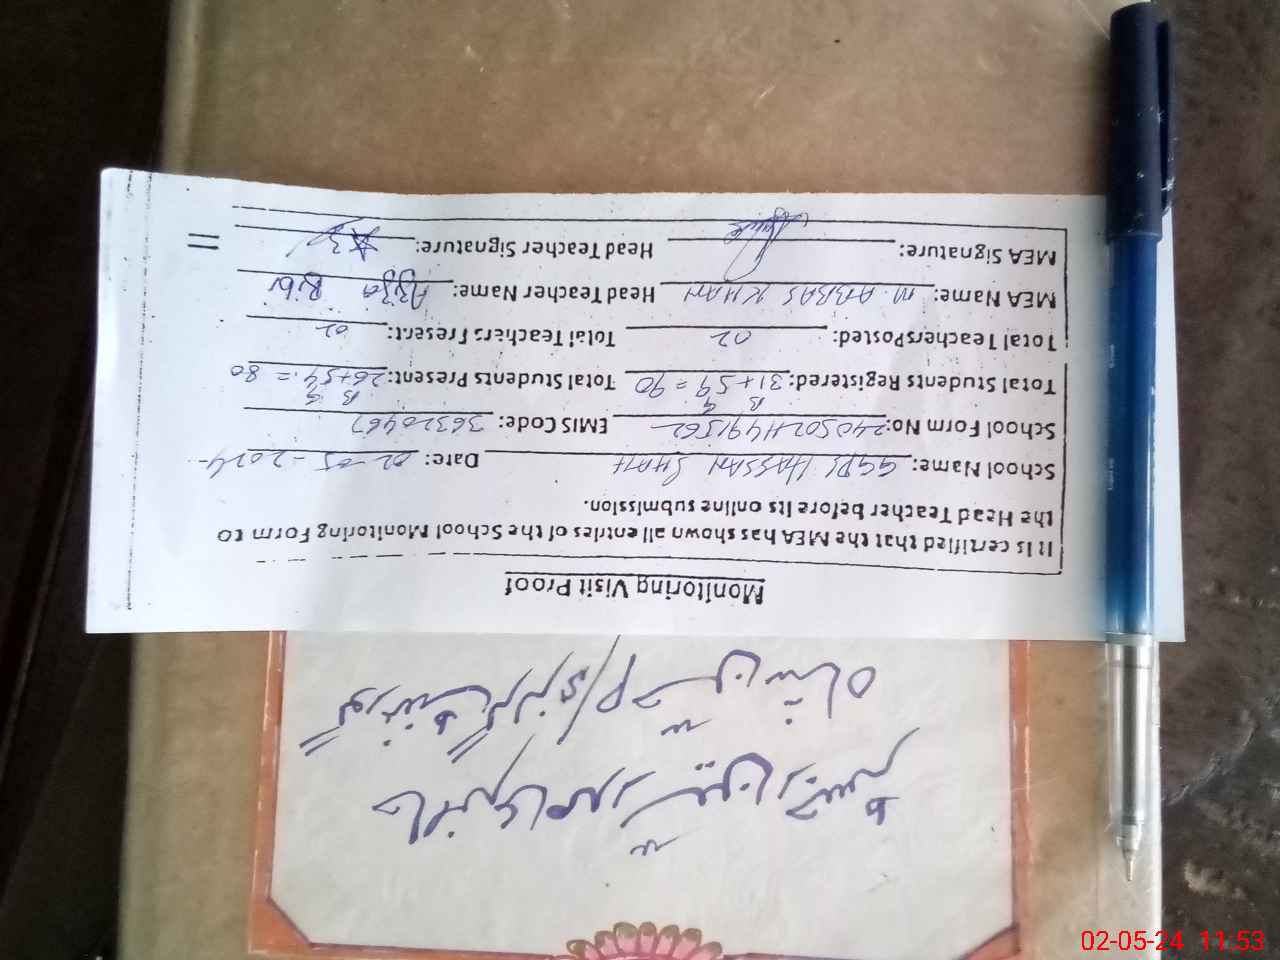 رجسٹر
گورنمنٹ گرلز P/S حسن شاہ
Monitoring Visit Proof
It is certified that the MEA has shown all entries of the School Monitoring Form to
the Head Teacher before its online submission.
School Name: GGPS HASSAN SHAH Date: 02-05-2024
School Form No: EMIS Code:
B G B G
Total Students Registered: 31+59=90 Total Students Present: 26+54=80
Total Teachers Posted: 02 Total Teachers Present: 02
MEA Name: M. ABBAS KHAN Head Teacher Name: Bibi
MEA Signature: Head Teacher Signature:
02-05-24 11:53